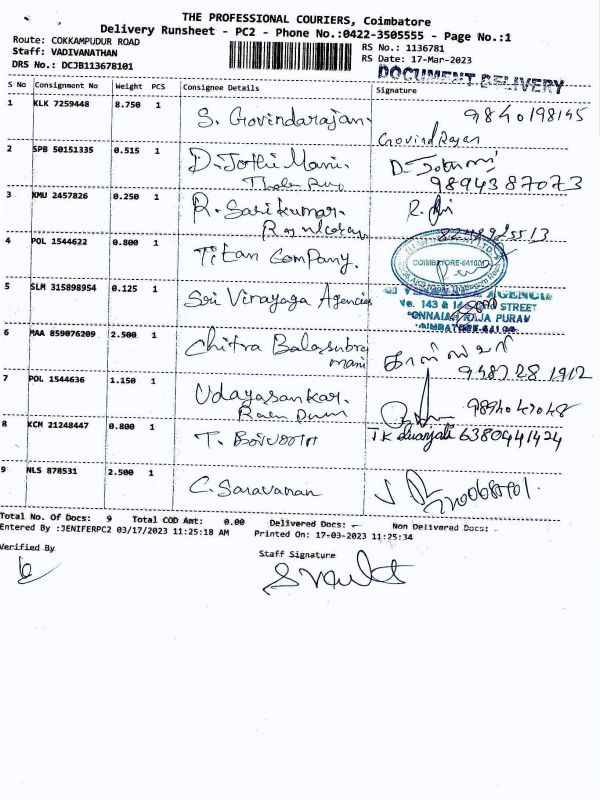 THE PROFESSIONAL COURIERS, Coimbatore
Delivery Runsheet - PC2 - Phone No.:0422-3505555 - Page No.:1
Route: COKKAMPUDUR ROAD
RS No.: 1136781
Staff: VADIVANATHAN
RS Date: 17-Mar-2023
DRS No.: DCJB113678101
DOCUMENT DELIVERY
S No Consignment No Weight PCS Consignee Details Signature
1 KLK 7259448 8.750 1 S. Govindarajan. 9840198145
Govind Rajan
2 SPB 50151335 0.515 1 D. Jothi Mani.
9894387073
3 KMU 2457826 0.250 1 R. Sasikumar. R.
4 POL 1544622 0.800 1 Titan Company.
COIMBATORE-641001
5 SLM 315898954 0.125 1 Sri Vinayaga Agencies
AGENCIE
No. 143 & STREET
6 MAA 859076209 2.500 1 Chitra Balasubra
mani
948728 1912
7 POL 1544636 1.150 1 Udayasankar.
8 KCM 21248447 0.800 1 T. 6380941424
9 NLS 878531 2.500 1 C. Saravanan
Total No. Of Docs: 9 Total COD Amt: 0.00 Delivered Docs: - Non Delivered Docs: -
Entered By :JENIFERPC2 03/17/2023 11:25:18 AM Printed On: 17-03-2023 11:25:34
Verified By
Staff Signature